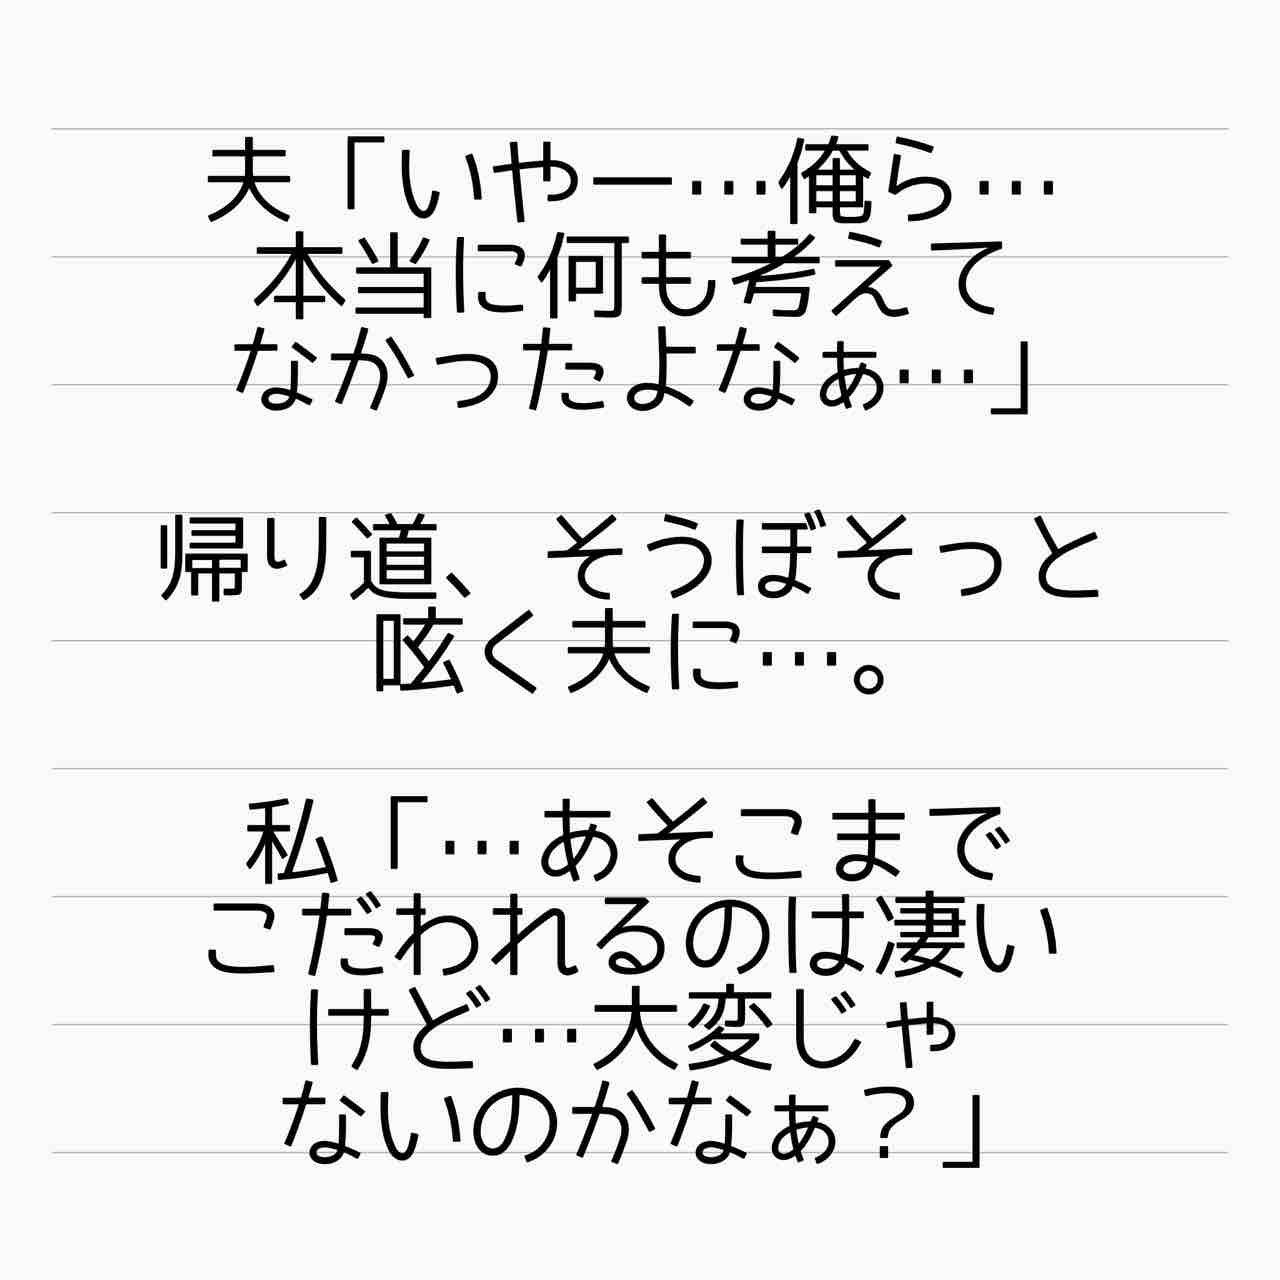 夫「いやー…俺ら…
本当に何も考えて
なかったよなぁ…」
帰り道、そうぼそっと
呟く夫に…。
私「…あそこまで
こだわれるのは凄い
けど…大変じゃ
ないのかなぁ？」